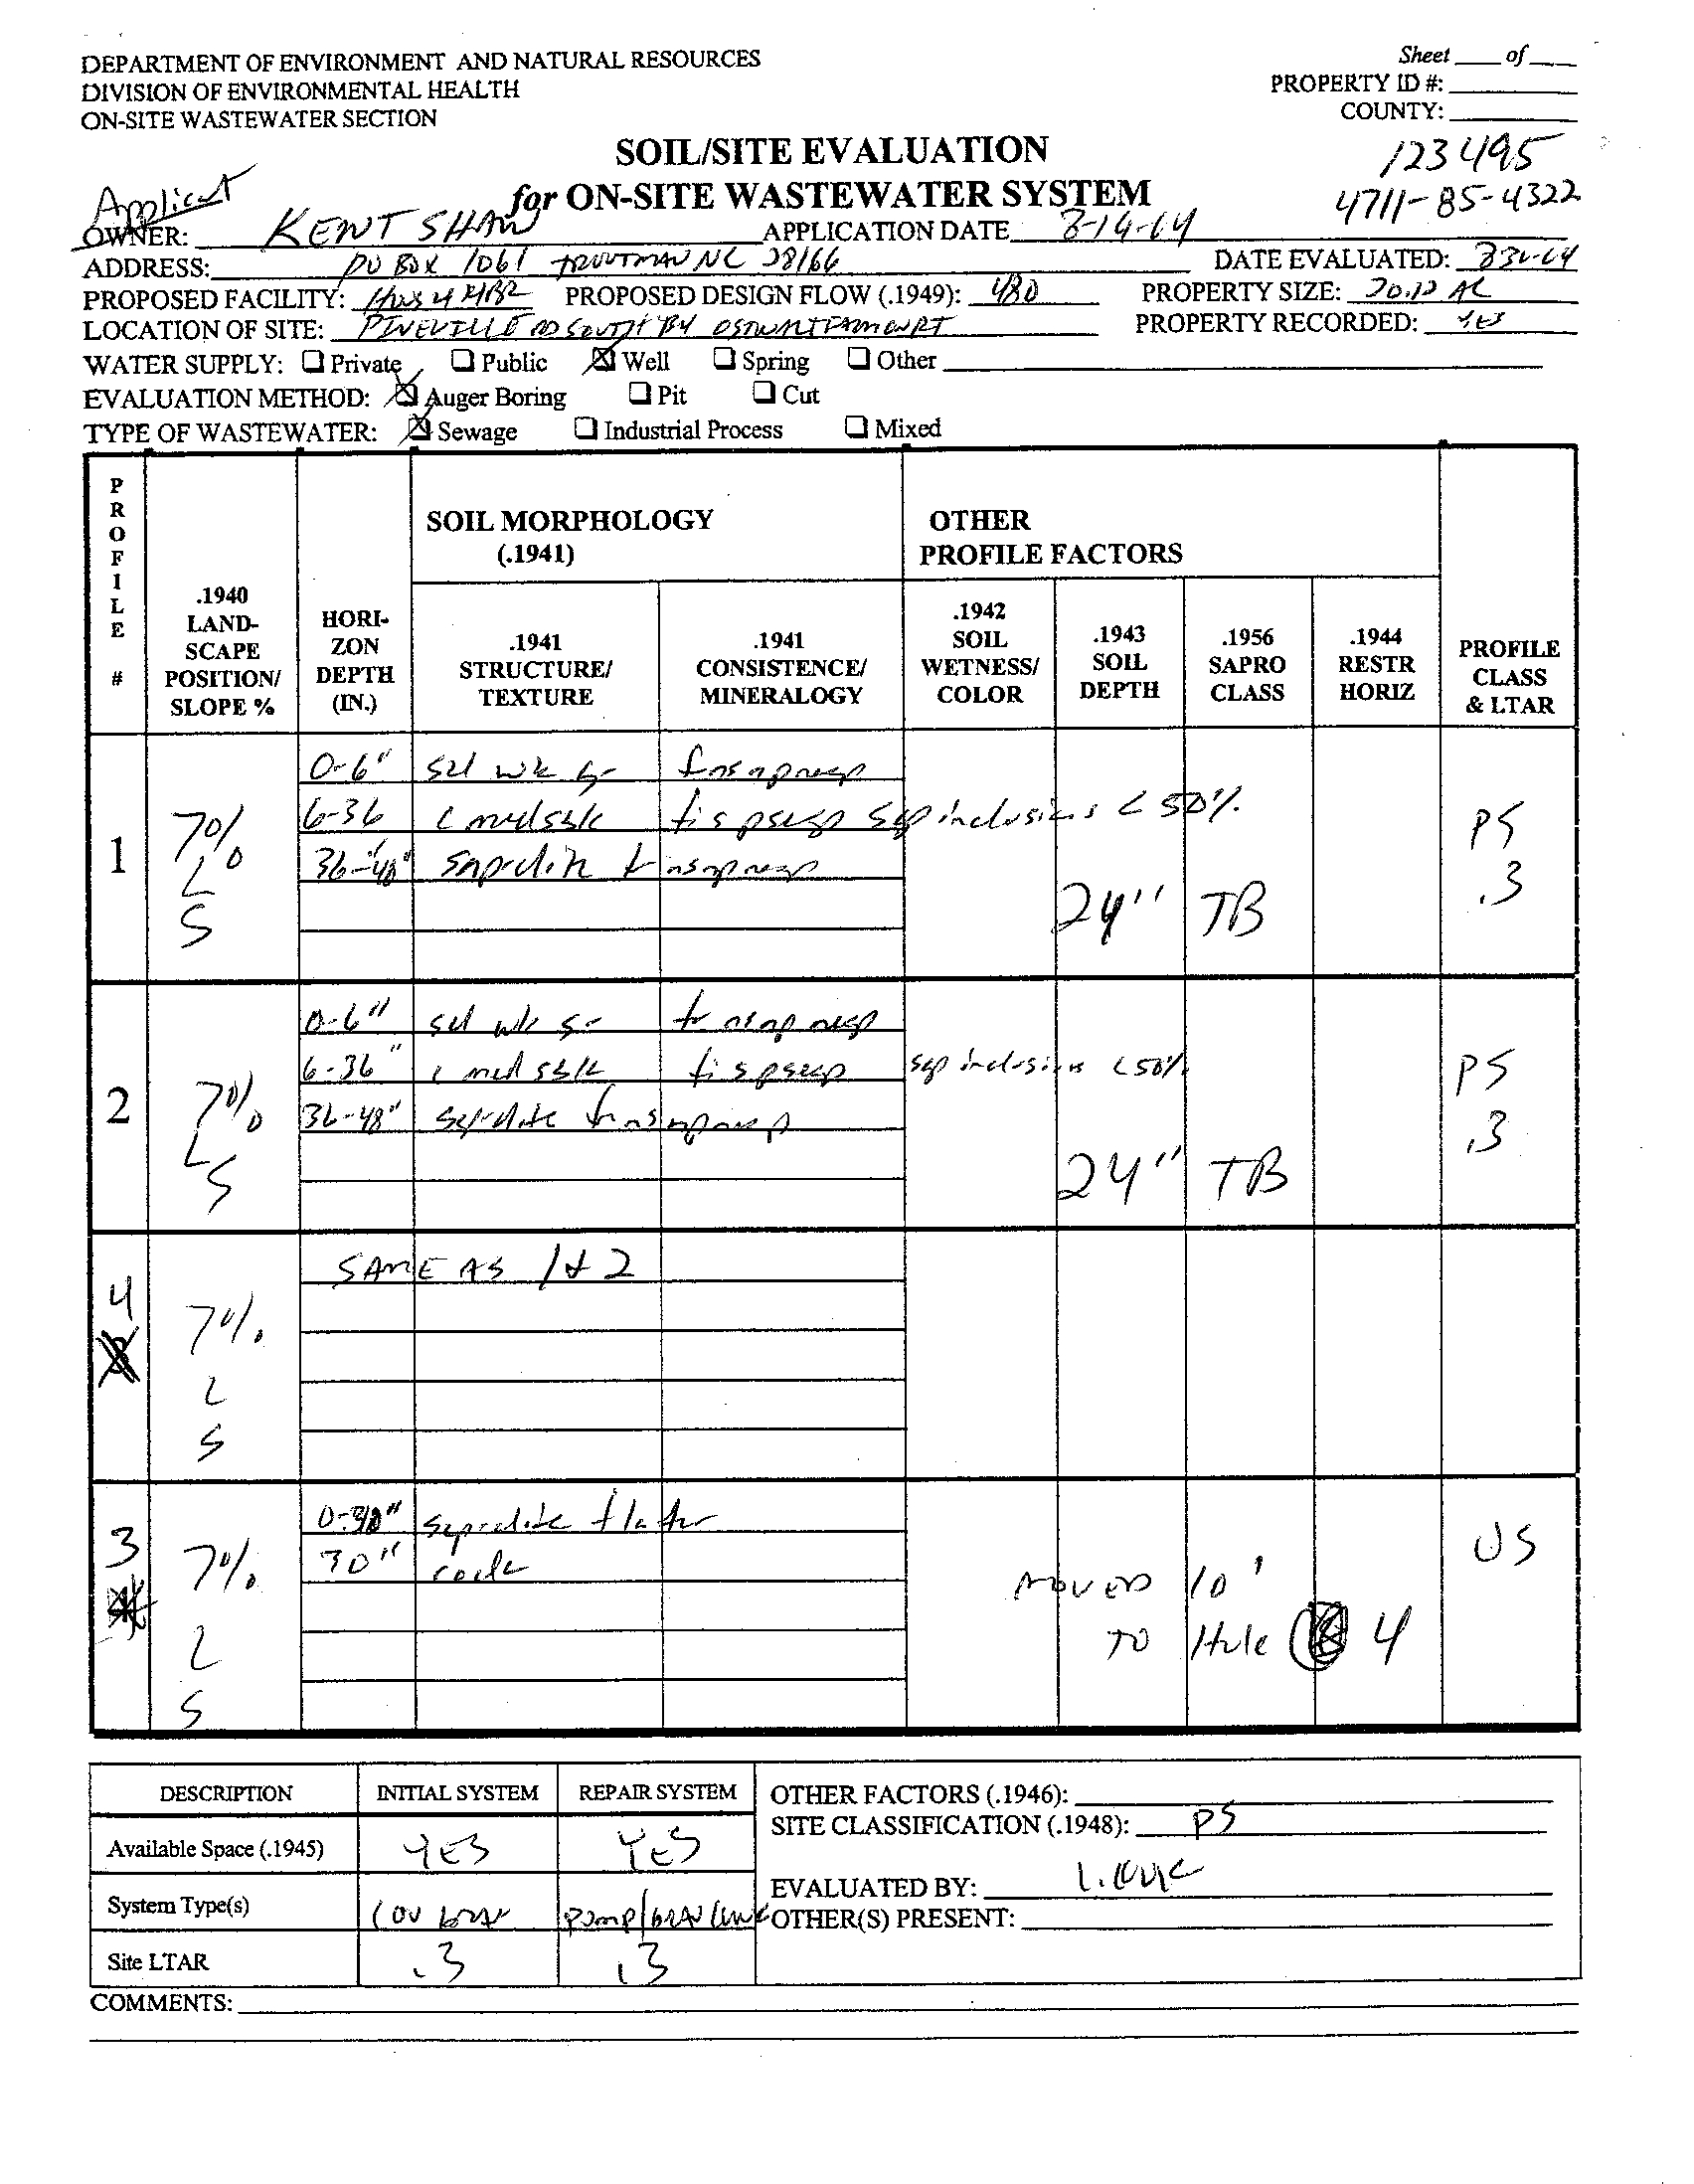 DEPARTMENT OF ENVIRONMENT AND NATURAL RESOURCES
DIVISION OF ENVIRONMENTAL HEALTH
ON-SITE WASTEWATER SECTION
Sheet ____ of ____
PROPERTY ID #:
COUNTY:
123495
4711-85-4322
SOIL/SITE EVALUATION
for ON-SITE WASTEWATER SYSTEM
Applicant
OWNER: KENT SHAW APPLICATION DATE 8-14-04
ADDRESS: PO BOX 1061 TROUTMAN NC 28166 DATE EVALUATED:
PROPOSED FACILITY: PROPOSED DESIGN FLOW (.1949): 480 PROPERTY SIZE: 20.12 AC
LOCATION OF SITE: PINEVILLE RD SOUTH PROPERTY RECORDED: YES
WATER SUPPLY: Private Public Well Spring Other
EVALUATION METHOD: Auger Boring Pit Cut
TYPE OF WASTEWATER: Sewage Industrial Process Mixed
PROFILE #
.1940 LAND-SCAPE POSITION/ SLOPE %
HORI-ZON DEPTH (IN.)
SOIL MORPHOLOGY
(.1941)
.1941 STRUCTURE/ TEXTURE
.1941 CONSISTENCE/ MINERALOGY
OTHER
PROFILE FACTORS
.1942 SOIL WETNESS/ COLOR
.1943 SOIL DEPTH
.1956 SAPRO CLASS
.1944 RESTR HORIZ
PROFILE CLASS & LTAR
1
7%
L
S
0-6" scl wk gr fr ns np nexp
6-36 c med sbk fi s p sexp sap inclusions < 50%
36-48" saprolite fr ns np nexp
24" TB
PS
.3
2
7%
L
S
0-6" scl wk gr fr ns np nexp
6-36" c med sbk fi s p sexp sap inclusions < 50%
36-48" saprolite fr ns np nexp
24" TB
PS
.3
4
7%
L
S
SAME AS 1 & 2
3
7%
L
S
saprolite
30" rock
MOVED 10'
TO Hole 4
US
DESCRIPTION INITIAL SYSTEM REPAIR SYSTEM
Available Space (.1945) YES YES
System Type(s) CONV GRAV PUMP/GRAV CONV
Site LTAR .3 .3
OTHER FACTORS (.1946):
SITE CLASSIFICATION (.1948): PS
EVALUATED BY:
OTHER(S) PRESENT:
COMMENTS: